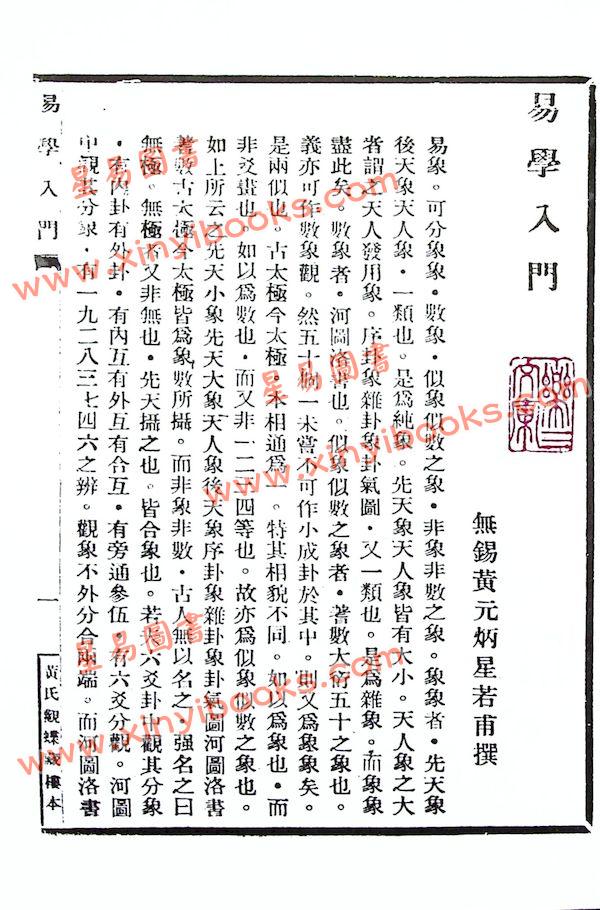 易學入門
無錫黃元炳星若甫撰
易象。可分象象。數象。似象似數之象。非象非數之象。象象者。先天象
後天象天人象。一類也。是為純象。先天象天人象皆有大小。天人象之大
者謂之天人發用象。序卦象雜卦象卦氣圖。又一類也。是為雜象。而象象
盡此矣。數象者。河圖洛書也。似象似數之象者。蓍數大衍五十之象也。
義亦可作數象觀。然五十側一未嘗不可作小成卦於其中。則又為象象矣。
是兩似也。古太極今太極。本相通為一。特其相貌不同。如以為象也。而
非爻畫也。如以為數也。而又非一二三四等也。故亦為似象似數之象也。
如上所云之先天小象先天大象天人象後天象序卦象雜卦象卦氣圖河圖洛書
蓍數古太極今太極皆為象數所攝。而非象非數。古人無以名之。強名之曰
無極。無極者又非無也。先天攝之也。皆合象也。若夫六爻卦中觀其分象
。有內卦有外卦。有內互有外互有合互。有旁通參伍。有六爻分觀。河圖
中觀其分象。有一九二八三七四六之辨。觀象不外分合兩端。而河圖洛書
易學入門
一
黃氏觀蝶樓本
星易圖書
www.xinyibooks.com
星易圖書
www.xinyibooks.com
星易圖書
www.xinyibooks.com